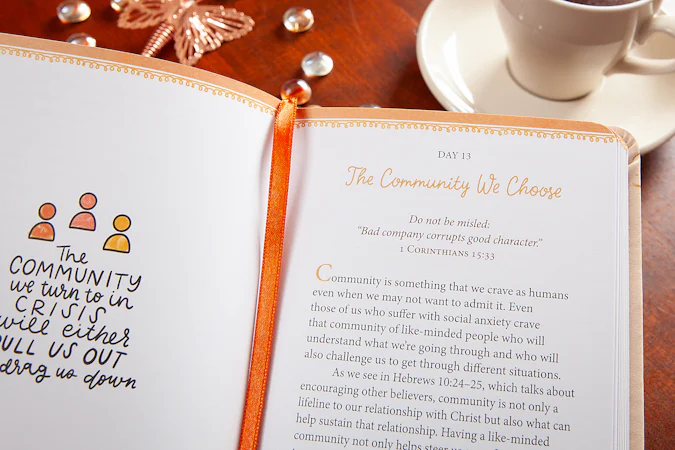 The
COMMUNITY
we turn to in
CRISIS
will either
PULL US OUT
drag us down
DAY 13
The Community We Choose
Do not be misled:
“Bad company corrupts good character.”
1 Corinthians 15:33
Community is something that we crave as humans
even when we may not want to admit it. Even
those of us who suffer with social anxiety crave
that community of like-minded people who will
understand what we’re going through and who will
also challenge us to get through different situations.
As we see in Hebrews 10:24–25, which talks about
encouraging other believers, community is not only a
lifeline to our relationship with Christ but also what can
help sustain that relationship. Having a like-minded
community not only helps steer